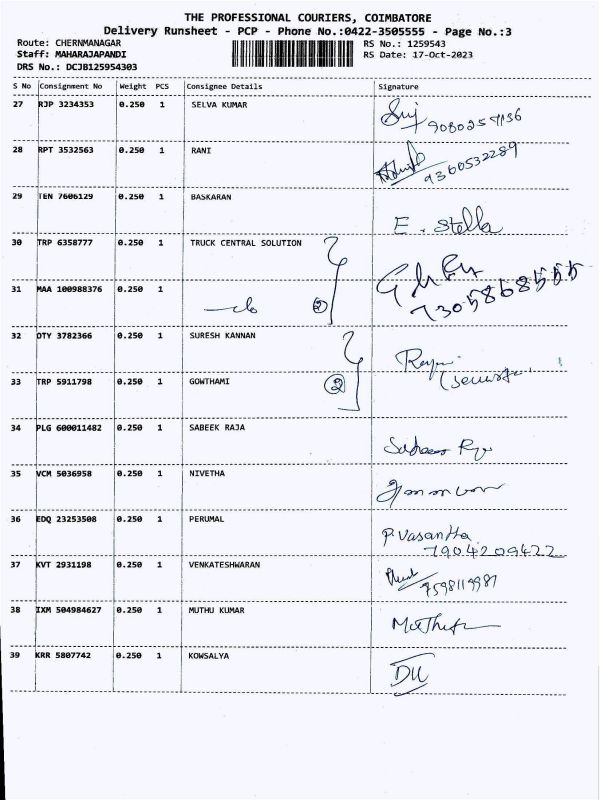 THE PROFESSIONAL COURIERS, COIMBATORE
Delivery Runsheet - PCP - Phone No.:0422-3505555 - Page No.:3
Route: CHERNMANAGAR RS No.: 1259543
Staff: MAHARAJAPANDI RS Date: 17-Oct-2023
DRS No.: DCJB125954303
S No Consignment No Weight PCS Consignee Details Signature
27 RJP 3234353 0.250 1 SELVA KUMAR
28 RPT 3532563 0.250 1 RANI 9360532289
29 TEN 7606129 0.250 1 BASKARAN E. Stella
30 TRP 6358777 0.250 1 TRUCK CENTRAL SOLUTION
31 MAA 100988376 0.250 1 2 7305868555
32 OTY 3782366 0.250 1 SURESH KANNAN
33 TRP 5911798 0.250 1 GOWTHAMI 2
34 PLG 600011482 0.250 1 SABEEK RAJA
35 VCM 5036958 0.250 1 NIVETHA
36 EDQ 23253508 0.250 1 PERUMAL P. Vasantha
7904209422
37 KVT 2931198 0.250 1 VENKATESHWARAN 7598119987
38 IXM 504984627 0.250 1 MUTHU KUMAR
39 KRR 5807742 0.250 1 KOWSALYA